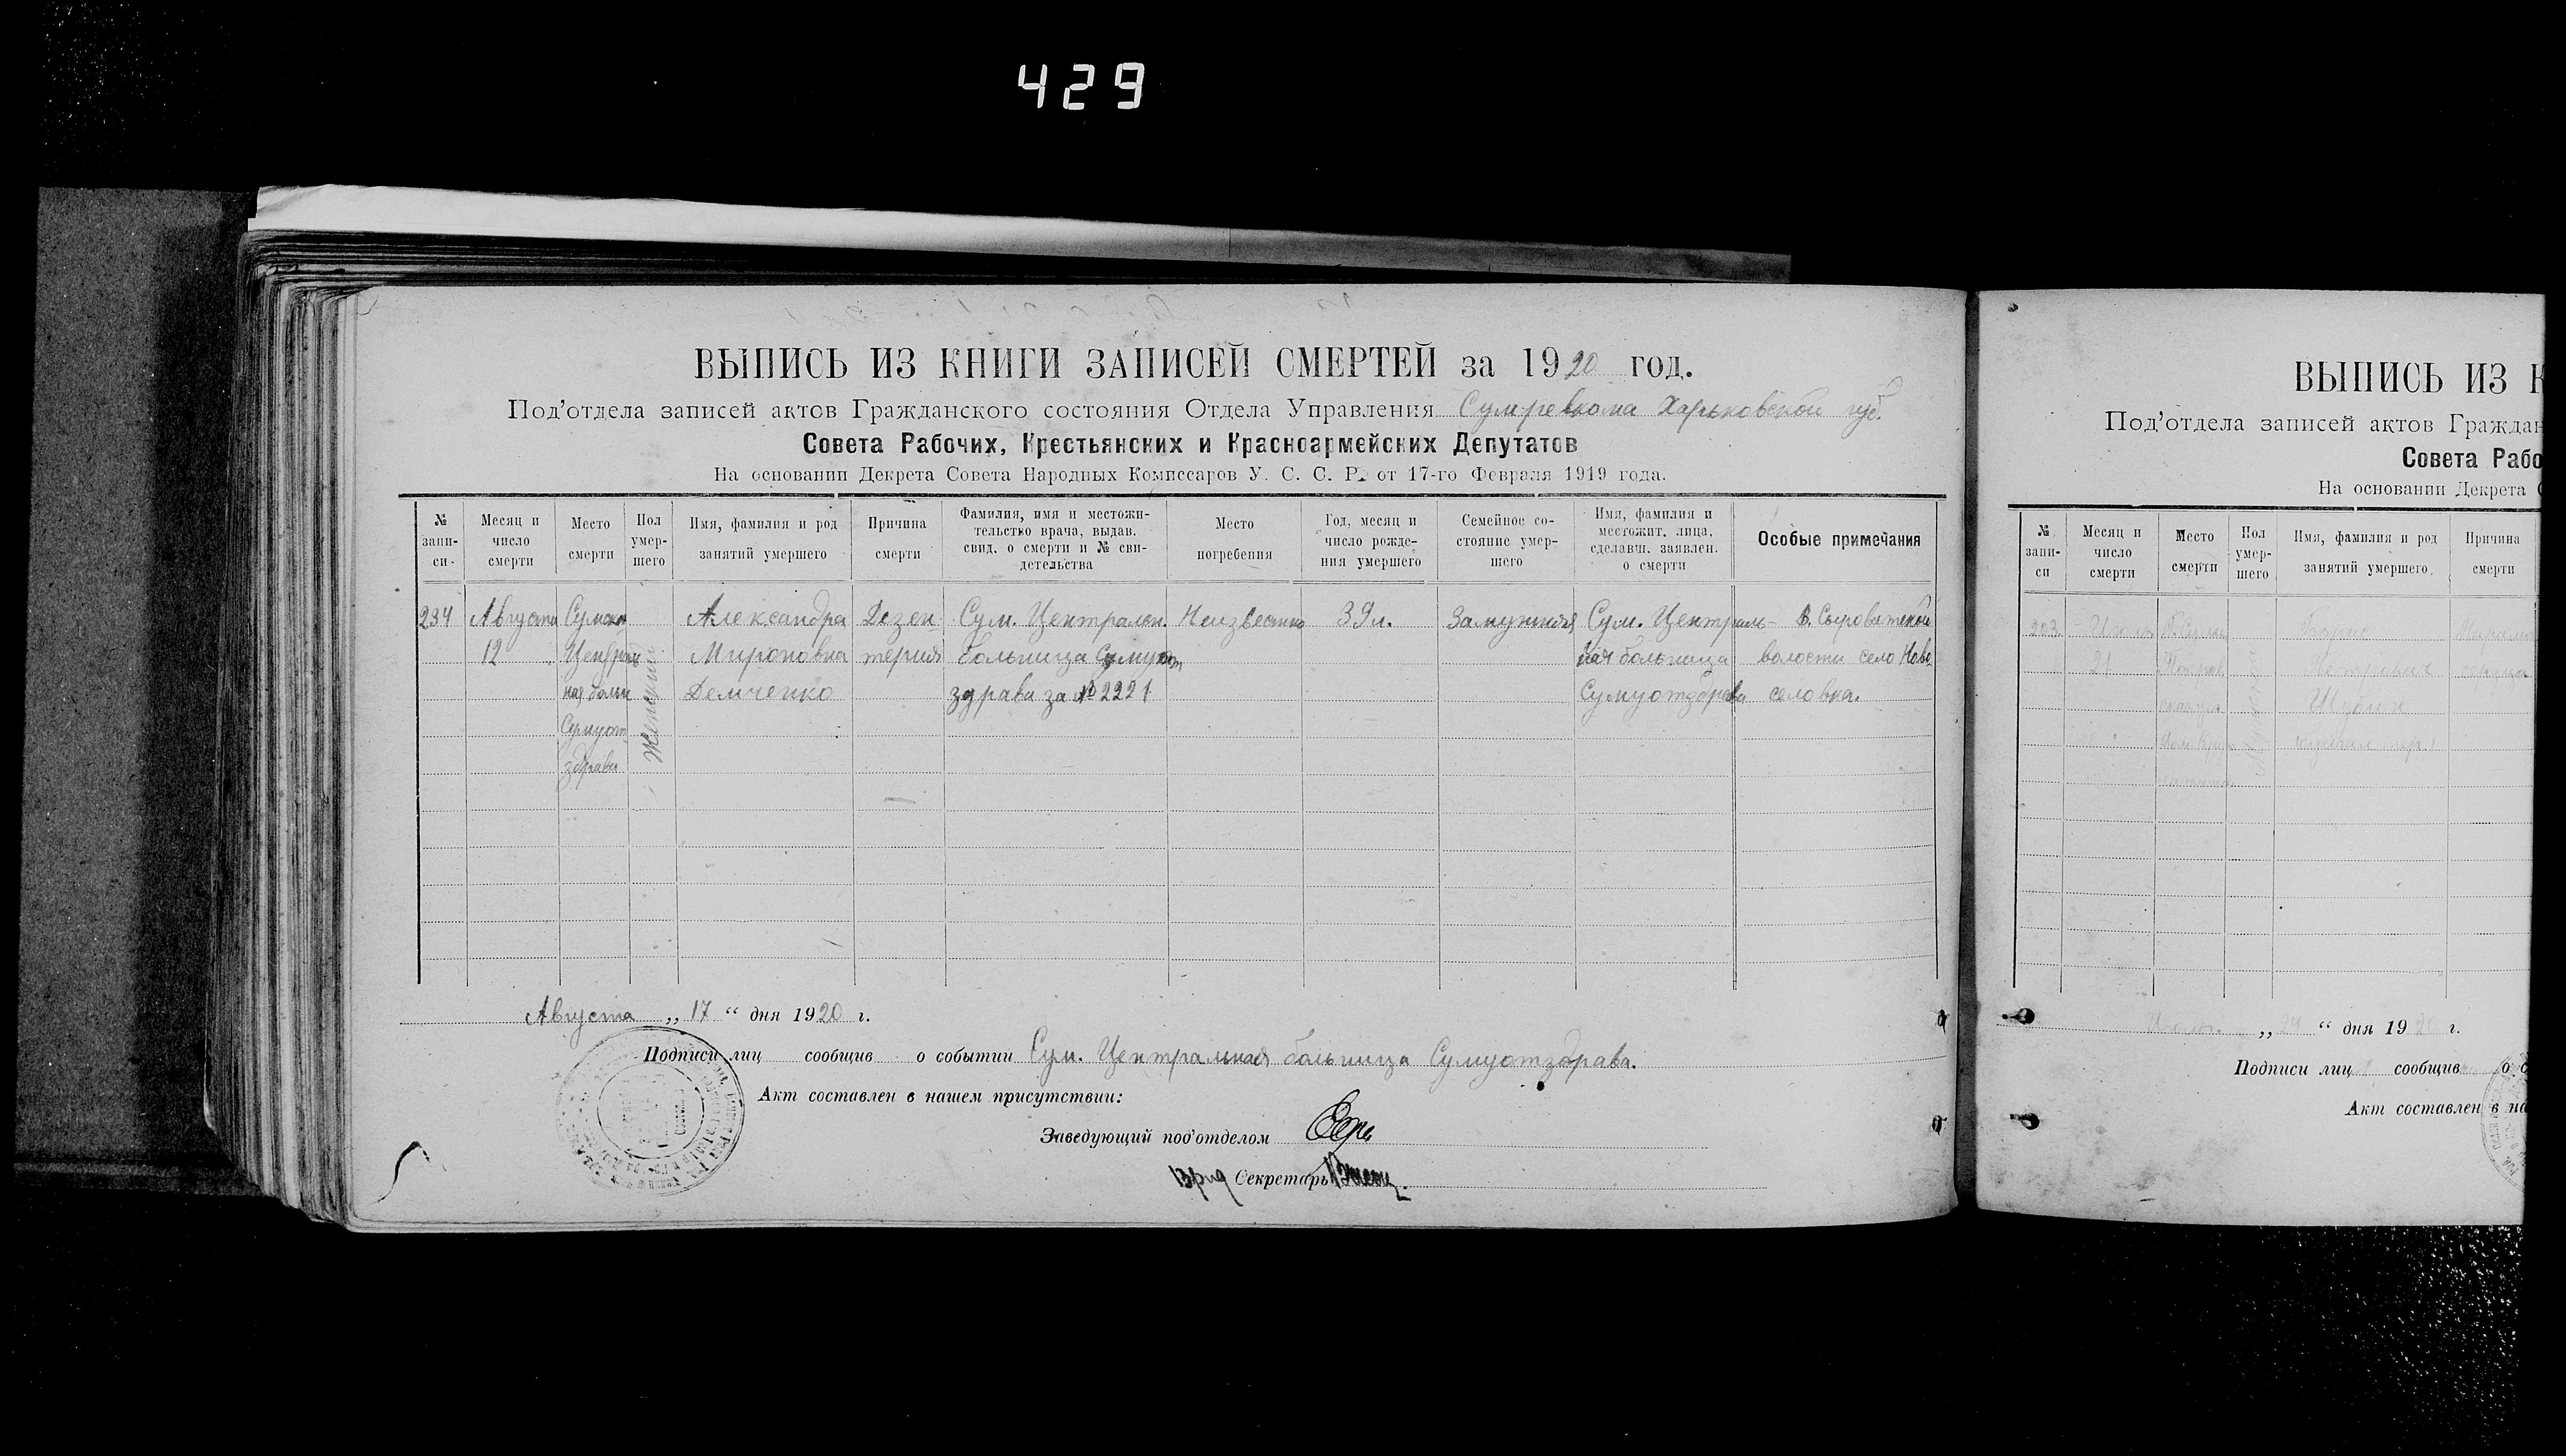 429
ВЫПИСЬ ИЗ КНИГИ ЗАПИСЕЙ СМЕРТЕЙ за 1920 год.
Под'отдела записей актов Гражданского состояния Отдела Управления Сумревкома Харьковской губ.
Совета Рабочих, Крестьянских и Красноармейских Депутатов
На основании Декрета Совета Народных Комиссаров У. С. С. Р. от 17-го Февраля 1919 года.
№ запи-си
Месяц и число смерти
Место смерти
Пол умер-шего
Имя, фамилия и род занятий умершего
Причина смерти
Фамилия, имя и местожи-тельство врача, выдав. свид. о смерти и № сви-детельства
Место погребения
Год, месяц и число рожде-ния умершего
Семейное со-стояние умер-шего
Имя, фамилия и местожит. лица, сделавш. заявлен. о смерти
Особые примечания
234
Августа
12
Сумска
Централ
ная больн
Сумуот
здрава
Женщина
Александра
Мироновна
Демченко
Дезен
терия
Сум. Центральн.
больница Сумуот
здрава за № 2221
Неизвестно
39л.
Замужняя
Сум. Централь-
ная больница
Сумуотздрава
В. Сыроватской
волости село Ново
селовка.
Августа „ 17 “ дня 1920 г.
Подписи лиц сообщив о событии Сум. Центральная больница Сумуотздрава.
Акт составлен в нашем присутствии:
Заведующий под'отделом
Врид Секретарь
ВЫПИСЬ ИЗ К
Под'отдела записей актов Граждан
Совета Рабо
На основании Декрета С
№ запи-си
Месяц и число смерти
Место смерти
Пол умер-шего
Имя, фамилия и род занятий умершего
Причина смерти
203
21
Петрович
„ 24 “ дня 19 г.
Подписи лиц сообщив о с
Акт составлен в на